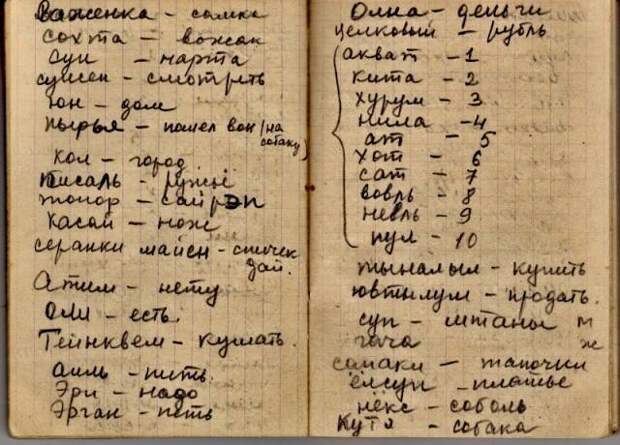 Важенка – самка
сохта – вожак
сун – нарта
сунсен – смотреть
юн – дом
пырья – пошел вон (на собаку)
кол – город.
писаль – ружьё
топор – сайрэп
касай – нож
серанки майен – спичек дай.
Атим – нету
Оли – есть.
Тейнквем – кушать.
аиль – пить.
Эри – надо
Эрган – петь
Олна – деньги
целковый – рубль
акват – 1
кита – 2
хурум – 3
нила – 4
ат – 5
хот – 6
сат – 7
вовль – 8
невль – 9
пул – 10
тыналыл – купить
ювтылум – продать.
суп – штаны м
гача ж
самаки – тапочки
ёлсуп – платье
нёкс – соболь
Кутя – собака